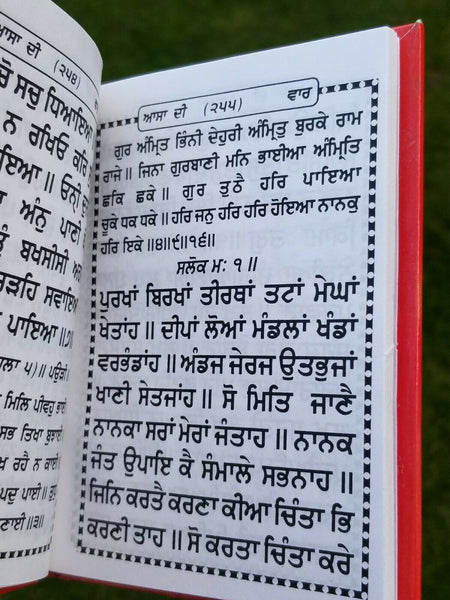 ਆਸਾ ਦੀ (੨੫੪)
ਸਚੁ ਧਿਆਇਆ
ਨ ਰਖਿਓ ਕਰਿ
ਪਾਇਆ ॥ ਓਨੀ
ਅੰਨੁ ਪਾਣੀ
ਤੂੰ ਬਖਸੀਸੀ ਅ
ੜਹਿ ਸਵਾਇਆ
ਪਾਇਆ ॥੭॥
ਮਹਲਾ ੫)॥ ਪਉੜੀ॥
ਮਿਲਿ ਪੀਵਹੁ ਭਾਈ
ਸਭ ਤਿਖਾ ਬੁਝਾਈ
ਰਹੈ ਨ ਕਾਈ
ਪਦੁ ਪਾਈ॥
॥੩॥
ਆਸਾ ਦੀ (੨੫੫) ਵਾਰ
ਗੁਰ ਅੰਮ੍ਰਿਤ ਭਿੰਨੀ ਦੇਹੁਰੀ ਅੰਮ੍ਰਿਤੁ ਬੁਰਕੇ ਰਾਮ
ਰਾਜੇ ॥ ਜਿਨਾ ਗੁਰਬਾਣੀ ਮਨਿ ਭਾਈਆ ਅੰਮ੍ਰਿਤਿ
ਛਕਿ ਛਕੇ ॥ ਗੁਰ ਤੁਠੈ ਹਰਿ ਪਾਇਆ
ਚੂਕੇ ਧਕ ਧਕੇ ॥ ਹਰਿ ਜਨੁ ਹਰਿ ਹਰਿ ਹੋਇਆ ਨਾਨਕੁ
ਹਰਿ ਇਕੇ ॥੪॥੯॥੧੬॥
ਸਲੋਕ ਮਃ ੧ ॥
ਪੁਰਖਾਂ ਬਿਰਖਾਂ ਤੀਰਥਾਂ ਤਟਾਂ ਮੇਘਾਂ
ਖੇਤਾਂਹ ॥ ਦੀਪਾਂ ਲੋਆਂ ਮੰਡਲਾਂ ਖੰਡਾਂ
ਵਰਭੰਡਾਂਹ ॥ ਅੰਡਜ ਜੇਰਜ ਉਤਭੁਜਾਂ
ਖਾਣੀ ਸੇਤਜਾਂਹ ॥ ਸੋ ਮਿਤਿ ਜਾਣੈ
ਨਾਨਕਾ ਸਰਾਂ ਮੇਰਾਂ ਜੰਤਾਹ ॥ ਨਾਨਕ
ਜੰਤ ਉਪਾਇ ਕੈ ਸੰਮਾਲੇ ਸਭਨਾਹ ॥
ਜਿਨਿ ਕਰਤੈ ਕਰਣਾ ਕੀਆ ਚਿੰਤਾ ਭਿ
ਕਰਣੀ ਤਾਹ ॥ ਸੋ ਕਰਤਾ ਚਿੰਤਾ ਕਰੇ